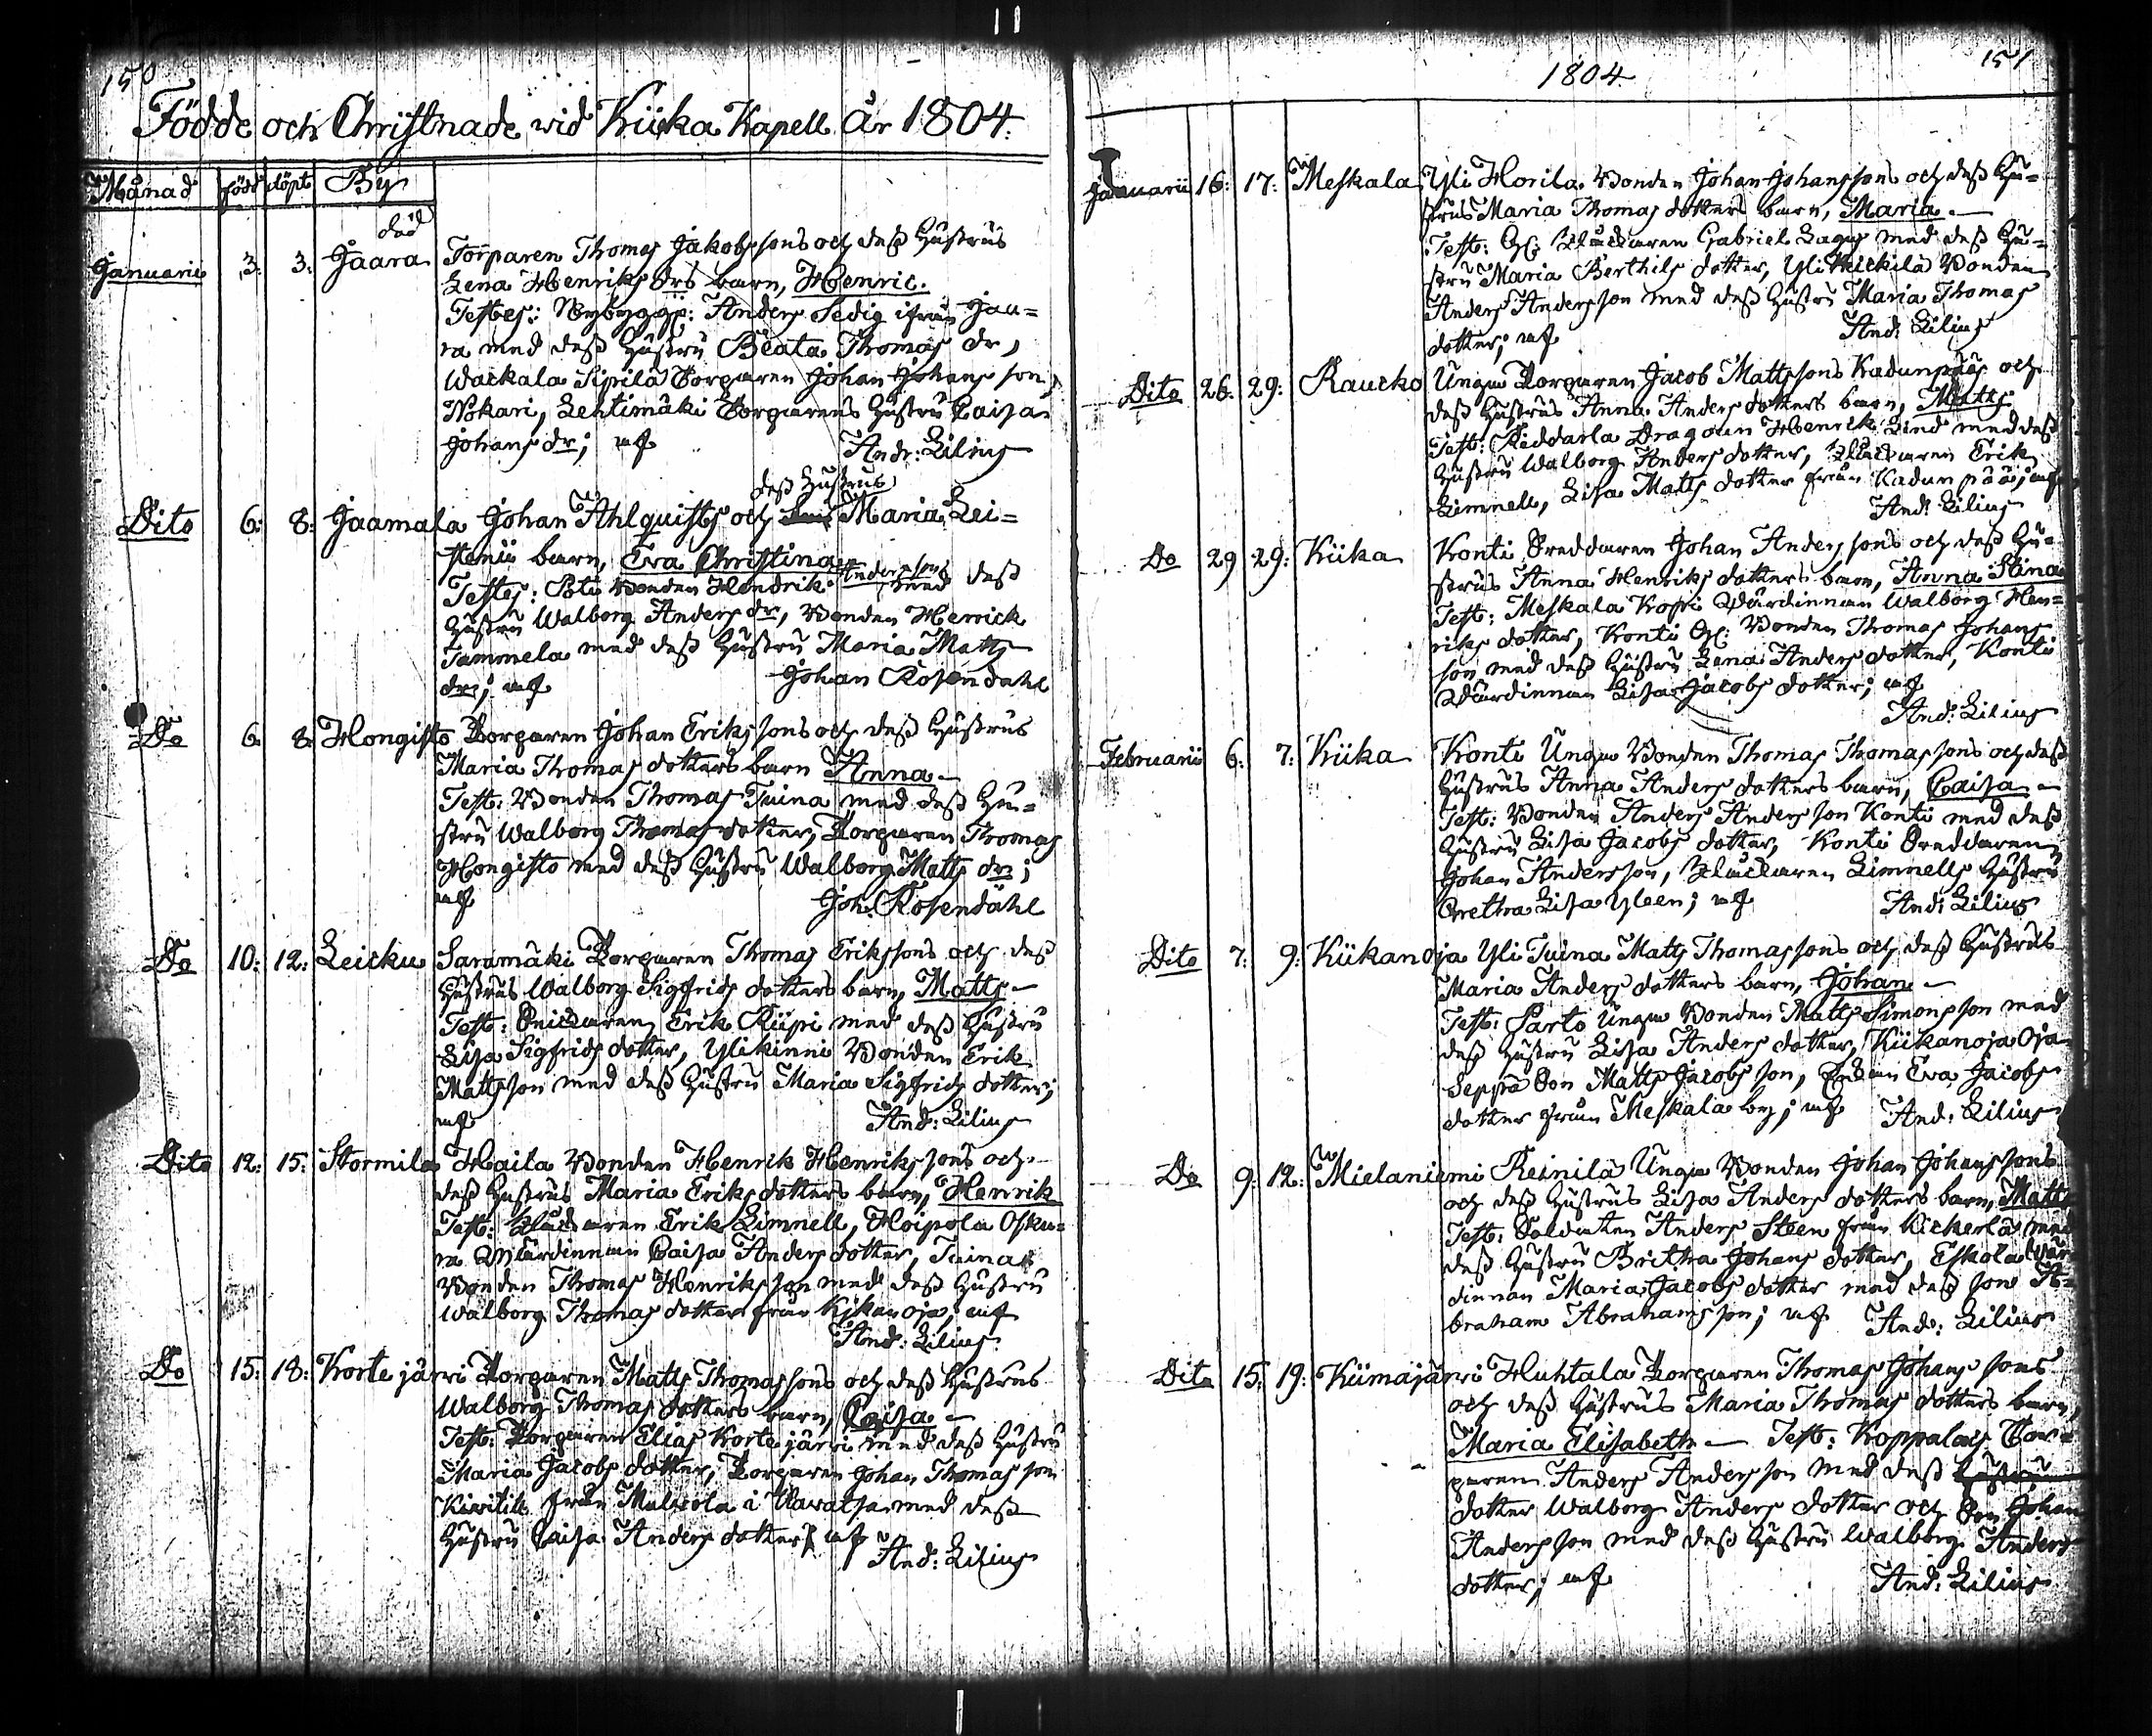 150
Födde och Christnade vid Kiika Kapell År 1804.
Månad född döpt By
död
Januarii 3. 3. Jaara Torparen Thomas Jakobssons och dess Hustrus
Lena Henriks drs barn, Henric.
Testes: Nybygg: Anders Sedig ifrån Jaa=
ra med dess Hustru Beata Thomas dr,
Wackala Sipilä Torparen Johan Johansson,
Nokari, Lehtimäki Torparens Hustru Caisa
Johans dr; uf Andr: Lilius
dess Hustrus
Dito 6: 8: Jaamala Johan Ahlquists och Maria Lei=
stenii barn, Eva Christina
Anderssons
Testes: Poti Bonden Hendrik med dess
Hustru Walborg Anders dr, Bonden Henrick
Tammela med dess Hustru Maria Matts
dr; uf Johan Rosendahl
Do 6. 8. Hongisto Torparen Johan Erikssons och dess Hustrus
Maria Thomas dotters barn Anna
Test: Bonden Thomas Tuina med dess Hu=
stru Walborg Thomas dotter, Torparen Thomas
Hongisto med dess Hustru Walborg Matts dr;
uf Joh: Rosendahl
Do 10: 12: Leicku Saramäki Torparen Thomas Erikssons och dess
Hustrus Walborg Sigfrids dotters barn, Matts
Test: Snickaren Erik Riipi med dess Hustru
Lisa Sigfrids dotter, Ylikinni Bonden Erik
Mattsson med dess Hustru Maria Sigfrids dotter;
uf And: Lilius
Dito 12: 15: Stormila Haila Bonden Henrik Henrikssons och
dess Hustrus Maria Eriks dotters barn, Henrik
Test: Klåckaren Erik Limnell, Hoipola Osku=
ra Wärdinnan Caisa Anders dotter, Tuina
Bonden Thomas Henriksson med dess Hustru
Walborg Thomas dotter från Kikanoja; uf
And: Lilius
Do 15: 18: Kortejärvi Torparen Matts Thomassons och dess Hustrus
Walborg Thomas dotters barn, Caisa
Test: Torparen Elias Kortejärvi med dess Hustru
Maria Jacobs dotter, Torparen Johan Thomasson
från i med dess
Hustru Caisa Anders dotter; uf And: Lilius
1804. 151
Januarii 16: 17: Meskala Yli Horila Bonden Johan Johanssons och dess Hu=
strus Maria Thomas dotters barn, Maria
Test: Klåckaren Gabriel Lagus med dess Hu=
stru Maria Berthils dotter, Yli Heickilä Bonden
Anders Andersson med dess Hustru Maria Thomas
dotter; uf And: Lilius
Dito 26: 29: Raucko Unga Torparen Jacob Mattssons Kadunpää och
dess Hustrus Anna Anders dotters barn, Matts
Test: Riddarla Dragoun Henrik Lind med dess
Hustru Walborg Anders dotter, Klåckaren Erik
Limnell, Lisa Matts dotter från Kadunpää; uf
And: Lilius
Do 29 29: Kiika Konti Skreddaren Johan Anderssons och dess Hu=
strus Anna Henriks dotters barn, Anna Stina
Test: Meskala Kopri Wärdinnan Walborg Hen=
riks dotter, Konti Bonden Thomas Johans
son med dess Hustru Lena Anders dotter, Konti
Wärdinnan Lisa Jacobs dotter; uf
And: Lilius
Februarii 6: 7: Kiika Konti Unga Bonden Thomas Thomassons och dess
Hustrus Anna Anders dotters barn, Caisa
Test: Bonden Anders Andersson Konti med dess
Hustru Lisa Jacobs dotter, Konti Skreddaren
Johan Andersson, Klåckaren Limnells Hustru
Gretha Lisa Yleen; uf And: Lilius
Dito 7: 9: Kiikanoja Yli Tuina Matts Thomassons och dess Hustrus
Maria Anders dotters barn, Johan
Test: Sarto Unga Bonden Matts Simonsson med
dess Hustru Lisa Anders dotter, Kiikanoja Oja
Seppä Son Matts Jacobsson, Enkan Eva Jacobs
dotter från Meskala by; uf And: Lilius
Do 9: 12: Mielaniemi Reinilä Unga Bonden Johan Johanssons
och dess Hustrus Lisa Anders dotters barn, Matts
Test: Soldaten Anders Steen från Kickerlä med
dess Hustru Britha Johans dotter, Eskola Wär
dinnan Maria Jacobs dotter med dess son A=
braham Abrahamsson; uf And: Lilius
Dito 15: 19: Kiimajärvi Huhtala Torparen Thomas Johanssons
och dess Hustrus Maria Thomas dotters barn,
Maria Elisabeth Test: Koppalais Tor=
paren Anders Andersson med dess Hustru
dotter Walborg Anders dotter och Son Johan
Andersson med dess Hustru Walborg Anders
dotter; uf And: Lilius